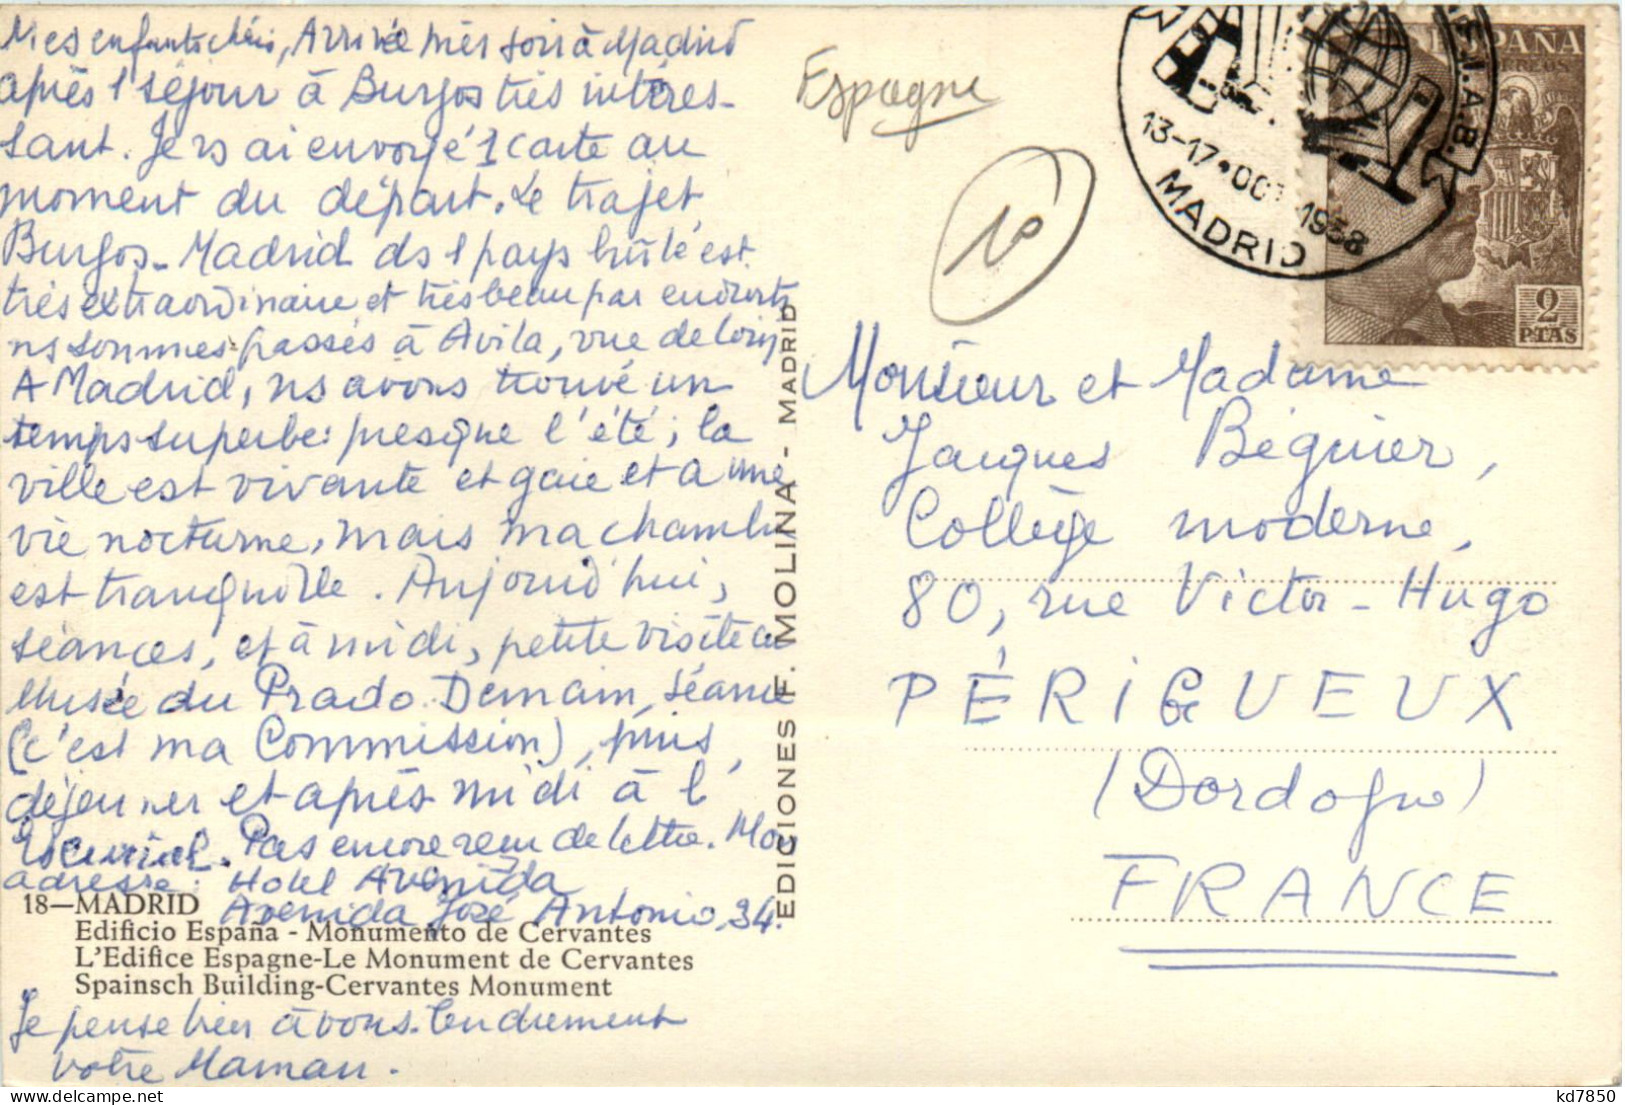 Mes enfants chéris, Arrivée hier soir à Madrid
après 1 séjour à Burgos très intéres-
sant. Je vs ai envoyé 1 carte au
moment du départ. Le trajet
Burgos-Madrid ds 1 pays brûlé est
très extraordinaire et très beau par endroits
ns sommes passés à Avila, vue de loin
A Madrid, ns avons trouvé un
temps superbe: presque l'été; la
ville est vivante et gaie et a une
vie nocturne, mais ma chambre
est tranquille. Aujourd'hui,
séances, et à midi, petite visite au
Musée du Prado. Demain, séance
(c'est ma Commission), puis,
déjeuner et après midi à l'
Escurial. Pas encore reçu de lettre. Mon
adresse: Hotel Avenida
Avenida José Antonio, 34.
18—MADRID
Edificio España - Monumento de Cervantes
L'Edifice Espagne-Le Monument de Cervantes
Spainsch Building-Cervantes Monument
Je pense bien à vous. Tendrement
votre Maman.
EDICIONES F. MOLINA - MADRID
Espagne
10
13-17•OCT 1958
MADRID
F.I.A.B.
ESPAÑA
CORREOS
2
PTAS
Monsieur et Madame
Jacques Béguier,
Collège moderne,
80, rue Victor-Hugo
PÉRIGUEUX
(Dordogne)
FRANCE
kd7850